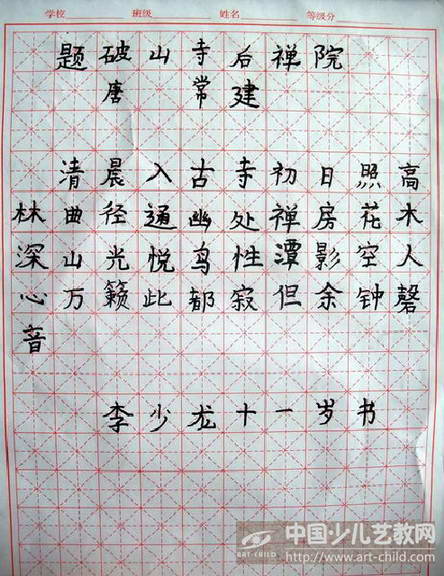 学校 班级 姓名 等级分
题破山寺后禅院
唐 常建
清晨入古寺初日照高
林曲径通幽处禅房花木
深山光悦鸟性潭影空人
心万籁此都寂但余钟磬
音
李少龙十一岁书
ART-CHILD 中国少儿艺教网
http://www.art-child.com